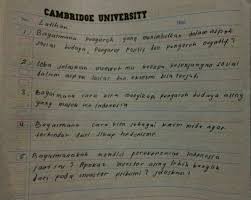 CAMBRIDGE UNIVERSITY
No. Latihan
1 Bagaimana pengaruh yang menimbulkan dalam aspek
sosial budaya, pengaruh positif dan pengaruh negatif ?
2 Coba jelaskan mengapa kesenjangan sosial
dalam aspek sosial dan ekonomi bisa terjadi
3 Bagaimana cara kita pengaruh budaya asing
yang masuk ke indonesia
4 Bagaimana cara kita sebagai agar
terhindar dari sikap
5 Bagaimanakah kondisi perekonomian Indonesia
saat ini ? Apakah investor asing lebih
dari pada investor pribumi ? jelaskan !